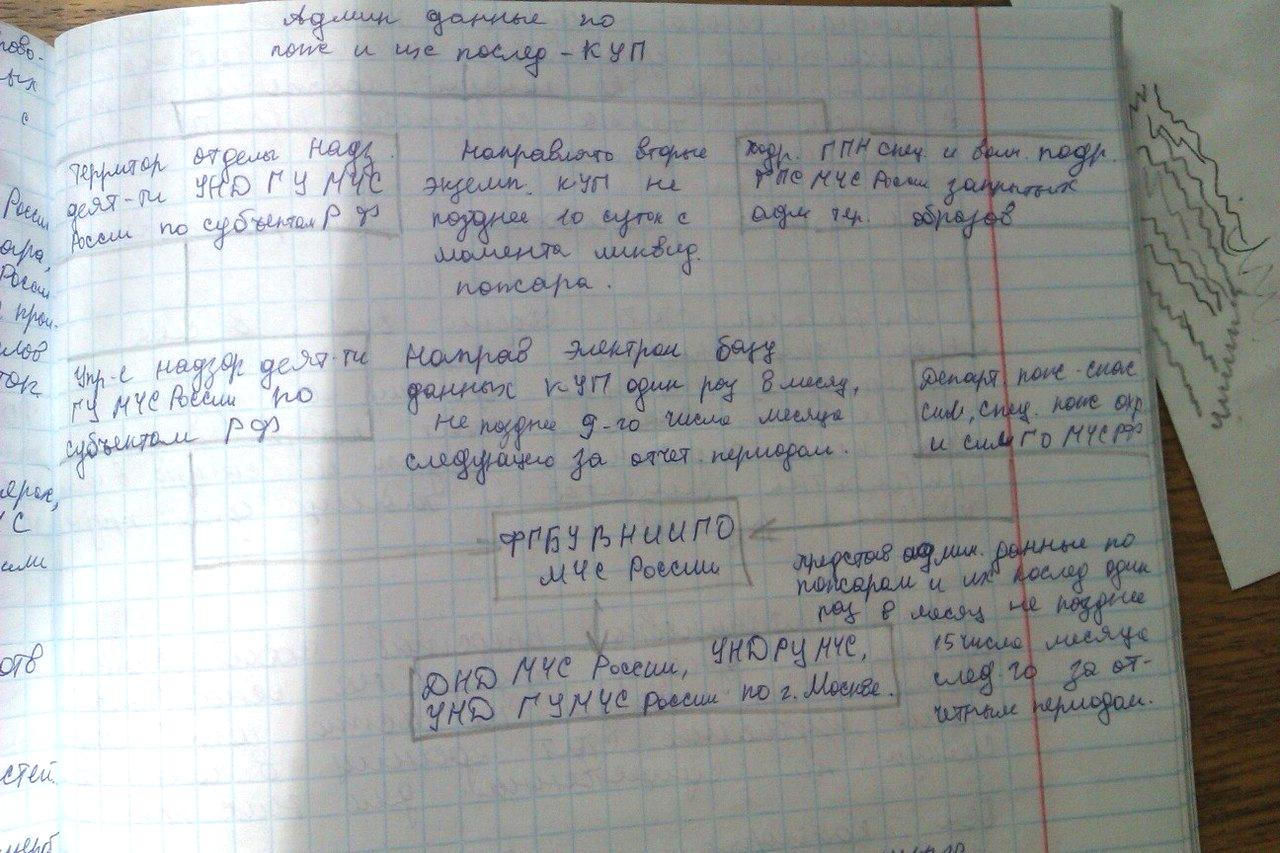 Админ данные по
пож и их послед - КУП
Территор отделы надз.
деят-ти УНД ГУ МЧС
России по субъектам РФ
Направлять вторые
экземп. КУП не
позднее 10 суток с
момента ликвид.
пожара.
подр. ГПН спец. и воин. подр.
ФПС МЧС России закрытых
адм тер. образов
Упр-е надзор деят-ти
ГУ МЧС России по
субъектам РФ
Направ электрон базу
данных КУП один раз в месяц,
не поздне 9-го числа месяца
следующего за отчет. периодом.
Департ пож-спас
сил, спец. пож охр
и сил ГО МЧС РФ
ФГБУ ВНИИПО
МЧС России
представ админ. данные по
пожарам и их послед один
раз в месяц не позднее
15 числа месяца
след-го за от-
четным периодом.
ДНД МЧС России, УНД РЦ МЧС,
УНД ГУ МЧС России по г. Москве.